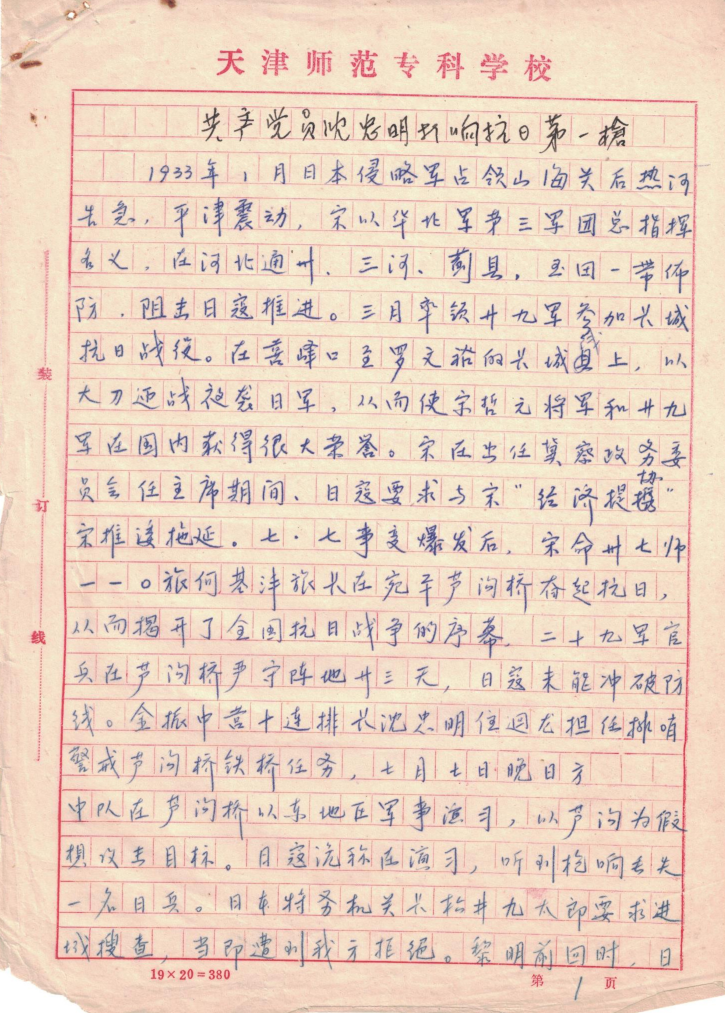 天津师范专科学校
共产党员沈忠明打响抗日第一槍
1933年1月日本侵略军占领山海关后热河
告急，平津震动，宋以华北军第三军团总指挥
名义，在河北通州、三河、蓟县，玉田一带佈
防，阻击日寇推进。三月率领廿九军参加长城
抗日战役。在喜峰口至罗文裕的长城线上，以
大刀迎战夜袭日军，从而使宋哲元将军和廿九
军在国内获得很大荣誉。宋在出任冀察政务委
员会任主席期间、日寇要求与宋“经济提携”
协
宋推诿拖延。七·七事变爆发后，宋命卅七师
一一〇旅何基沣旅长在宛平芦沟桥奋起抗日，
从而揭开了全国抗日战争的序幕，二十九军官
兵在芦沟桥严守阵地廿三天，日寇未能冲破防
线。金振中营十连排长沈忠明担任排哨
警戒芦沟桥铁桥任务，七月七日晚日方
中队在芦沟桥以东地区军事演习，以芦沟为假
想攻击目标。日寇诡称在演习，听到枪响丢失
一名日兵。日本特务机关长松井九太郎要求进
城搜查，当即遭到我方拒绝。黎明前回时，日
装
订
线
19×20=380
第1页